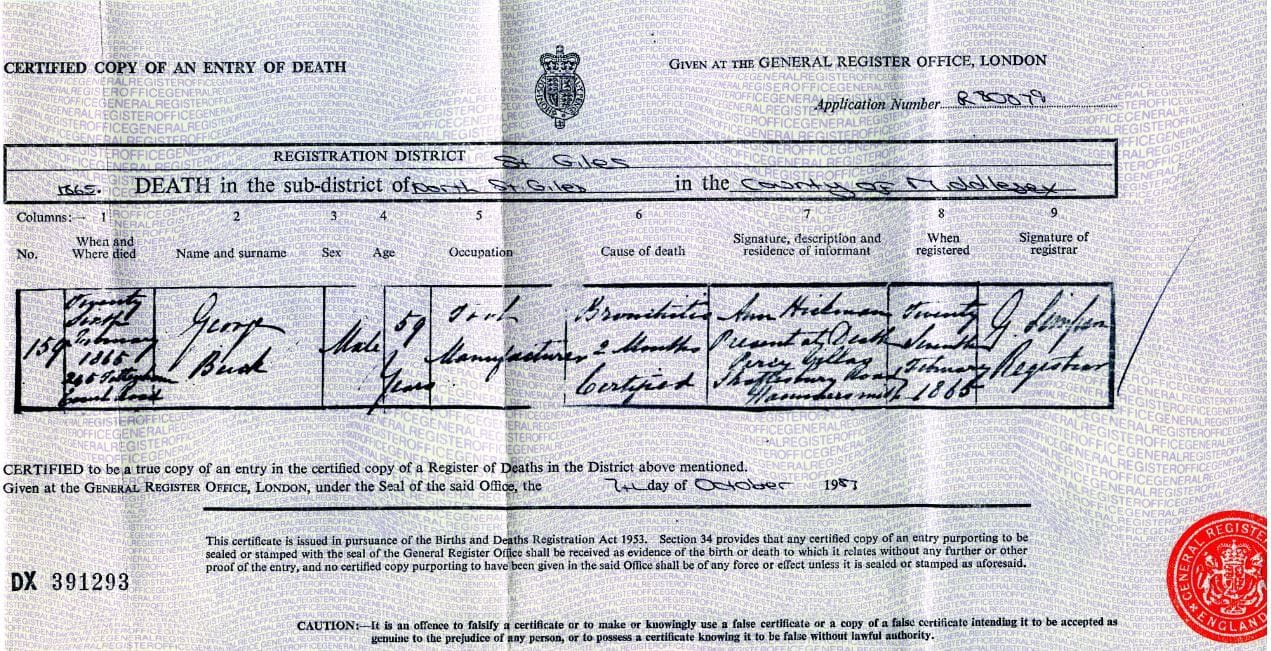 CERTIFIED COPY OF AN ENTRY OF DEATH
GIVEN AT THE GENERAL REGISTER OFFICE, LONDON
Application Number
REGISTRATION DISTRICT St Giles
1865. DEATH in the sub-district of North St Giles in the County of Middlesex
Columns:— 1 2 3 4 5 6 7 8 9
No. When and Where died Name and surname Sex Age Occupation Cause of death Signature, description and residence of informant When registered Signature of registrar
159
Twenty
Sixth
February
1865
245 Tottenham
Court Road
George
Male
59
Years
Tool
Manufacturer
Bronchitis
2 Months
Certified
Ann Hickman
Present at Death
Percy
Shaftesbury Road
Hammersmith
Twenty
Seventh
February
1865
G. Simpson
Registrar
CERTIFIED to be a true copy of an entry in the certified copy of a Register of Deaths in the District above mentioned.
Given at the GENERAL REGISTER OFFICE, LONDON, under the Seal of the said Office, the 7th day of October 1983
This certificate is issued in pursuance of the Births and Deaths Registration Act 1953. Section 34 provides that any certified copy of an entry purporting to be
sealed or stamped with the seal of the General Register Office shall be received as evidence of the birth or death to which it relates without any further or other
proof of the entry, and no certified copy purporting to have been given in the said Office shall be of any force or effect unless it is sealed or stamped as aforesaid.
DX 391293
CAUTION:—It is an offence to falsify a certificate or to make or knowingly use a false certificate or a copy of a false certificate intending it to be accepted as
genuine to the prejudice of any person, or to possess a certificate knowing it to be false without lawful authority.
GENERAL REGISTER
ENGLAND